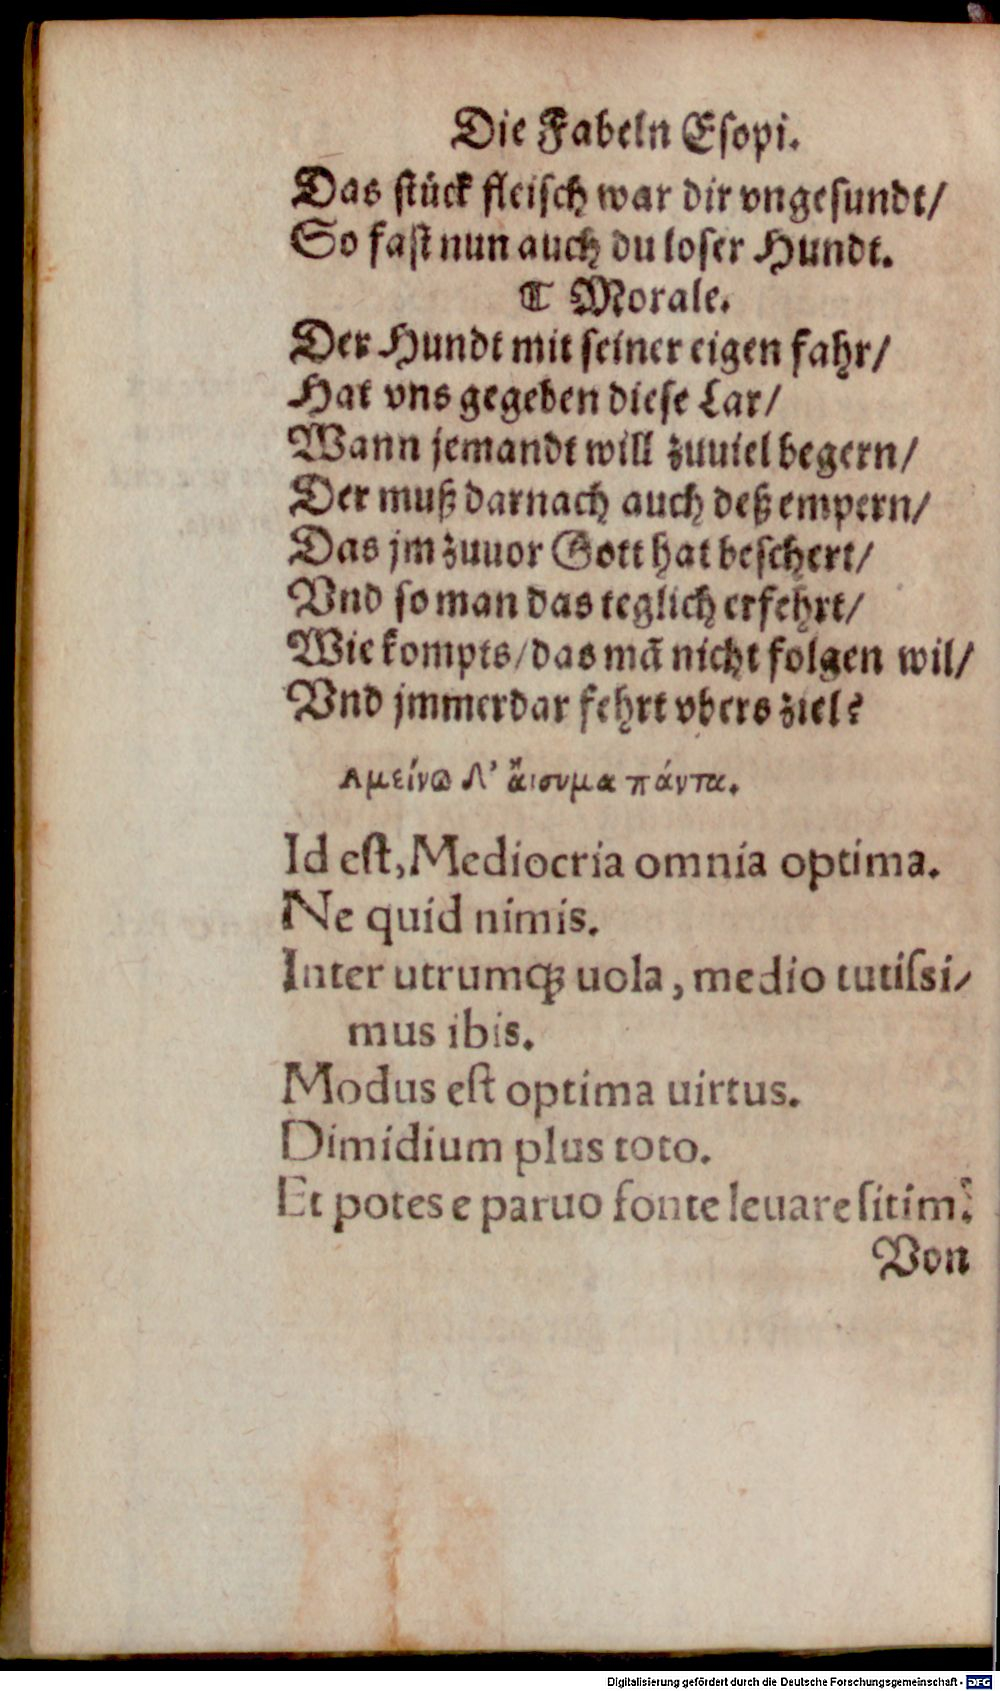 Die Fabeln Eſopi.
Das ſtück fleiſch war dir vngeſundt/
So faſt nun auch du loſer Hundt.
❡ Morale.
Der Hundt mit ſeiner eigen fahr/
Hat vns gegeben dieſe Lar/
Wann jemandt will zuuiel begern/
Der muß darnach auch deß empern/
Das jm zuuor Gott hat beſchert/
Vnd ſo man das teglich erfehrt/
Wie kompts/das mã nicht folgen wil/
Vnd jmmerdar fehrt vbers ziel?
Αμείνω δ' ἄισυμα πάντα.
Id eſt, Mediocria omnia optima.
Ne quid nimis.
Inter utrumqꝫ uola, medio tutiſsi/
mus ibis.
Modus eſt optima uirtus.
Dimidium plus toto.
Et potes e paruo fonte leuare ſitim.
Von
Digitalisierung gefördert durch die Deutsche Forschungsgemeinschaft - DFG